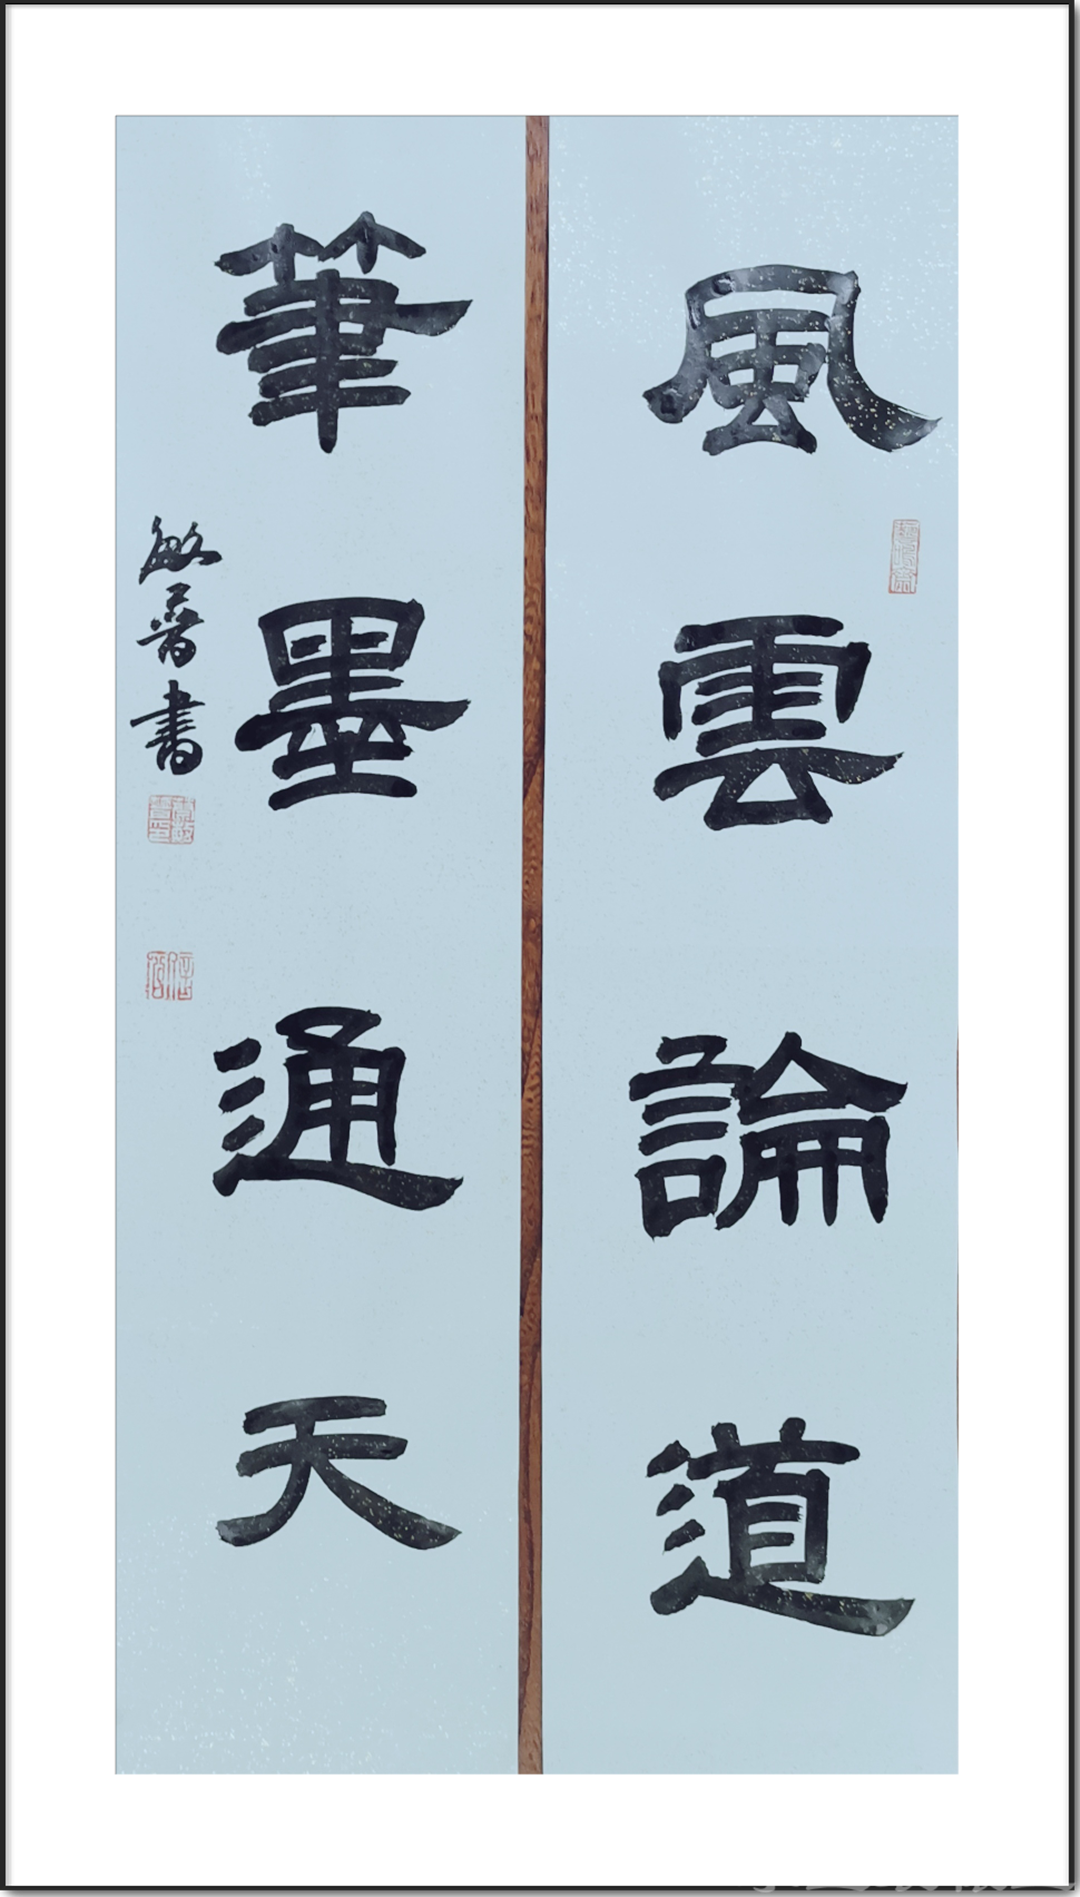 風雲論道
筆墨通天
敏晉書